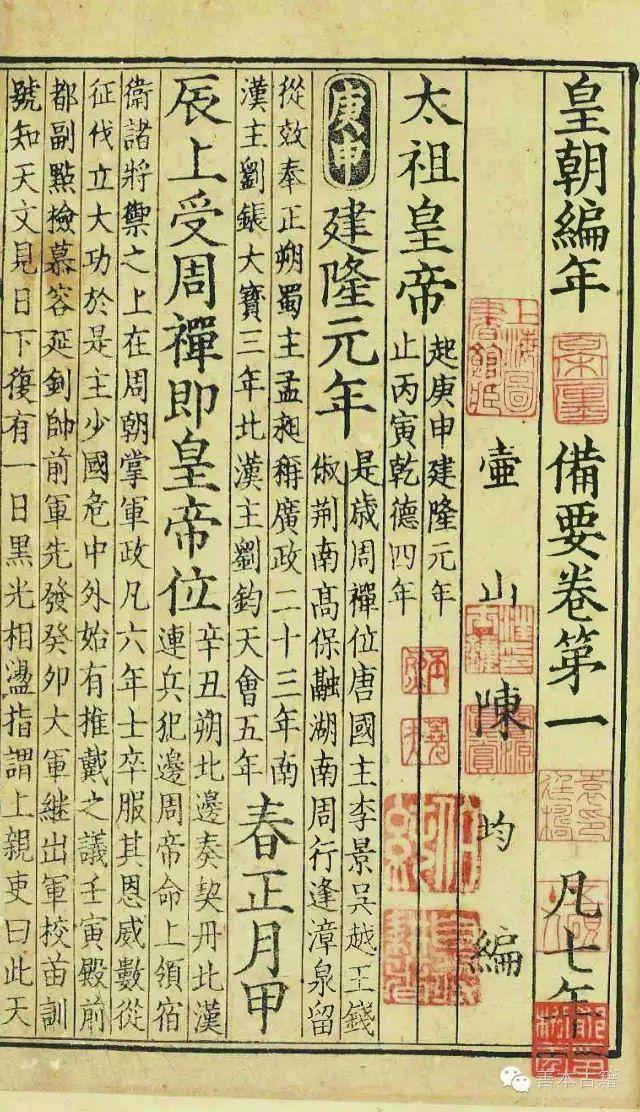 皇朝編年備要卷第一 凡七年
上海圖書館臧
壺山陳均編
太祖皇帝
起庚申建隆元年
止丙寅乾德四年
庚申 建隆元年
是歲周禪位唐國主李景吳越王錢
俶荆南髙保融湖南周行逢漳泉留
從效奉正朔蜀主孟昶稱廣政二十三年南
漢主劉鋹大寶三年北漢主劉鈞天會五年
春正月甲
辰上受周禪即皇帝位
辛丑朔北邊奏契丹北漢
連兵犯邊周帝命上領宿
衛諸將禦之上在周朝掌軍政凡六年士卒服其恩威數從
征伐立大功於是主少國危中外始有推戴之議壬寅殿前
都副點檢慕容延釗帥前軍先發癸卯大軍継出軍校苗訓
號知天文見日下復有一日黑光相盪指謂上親吏曰此天
善本古籍